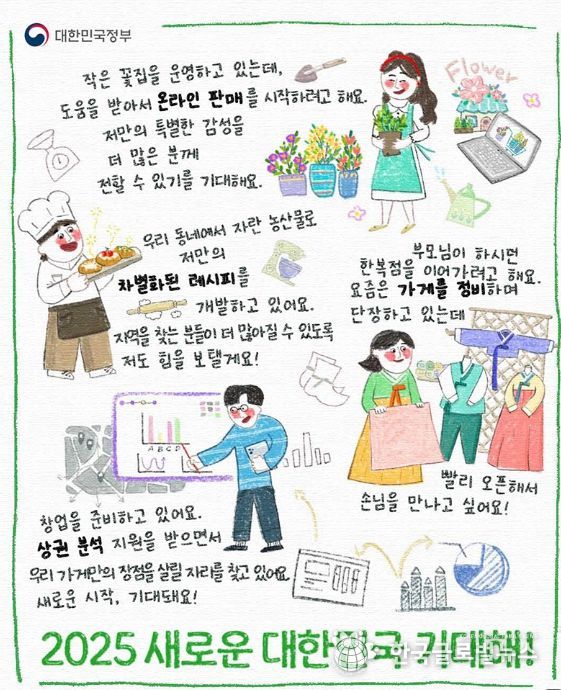 대한민국정부
작은 꽃집을 운영하고 있는데,
도움을 받아서 온라인 판매를 시작하려고 해요.
저만의 특별한 감성을
더 많은 분께
전할 수 있기를 기대해요.
Flower
우리 동네에서 자란 농산물로
저만의
차별화된 레시피를
개발하고 있어요.
지역을 찾는 분들이 더 많아질 수 있도록
저도 힘을 보탤게요!
부모님이 하시던
한복점을 이어가려고 해요.
요즘은 가게를 정비하며
단장하고 있는데
빨리 오픈해서
손님을 만나고 싶어요!
A B C D
창업을 준비하고 있어요.
상권 분석 지원을 받으면서
우리 가게만의 장점을 살릴 자리를 찾고 있어요
새로운 시작, 기대돼요!
2025 새로운 대한민국 기대해!
한국글로벌뉴스